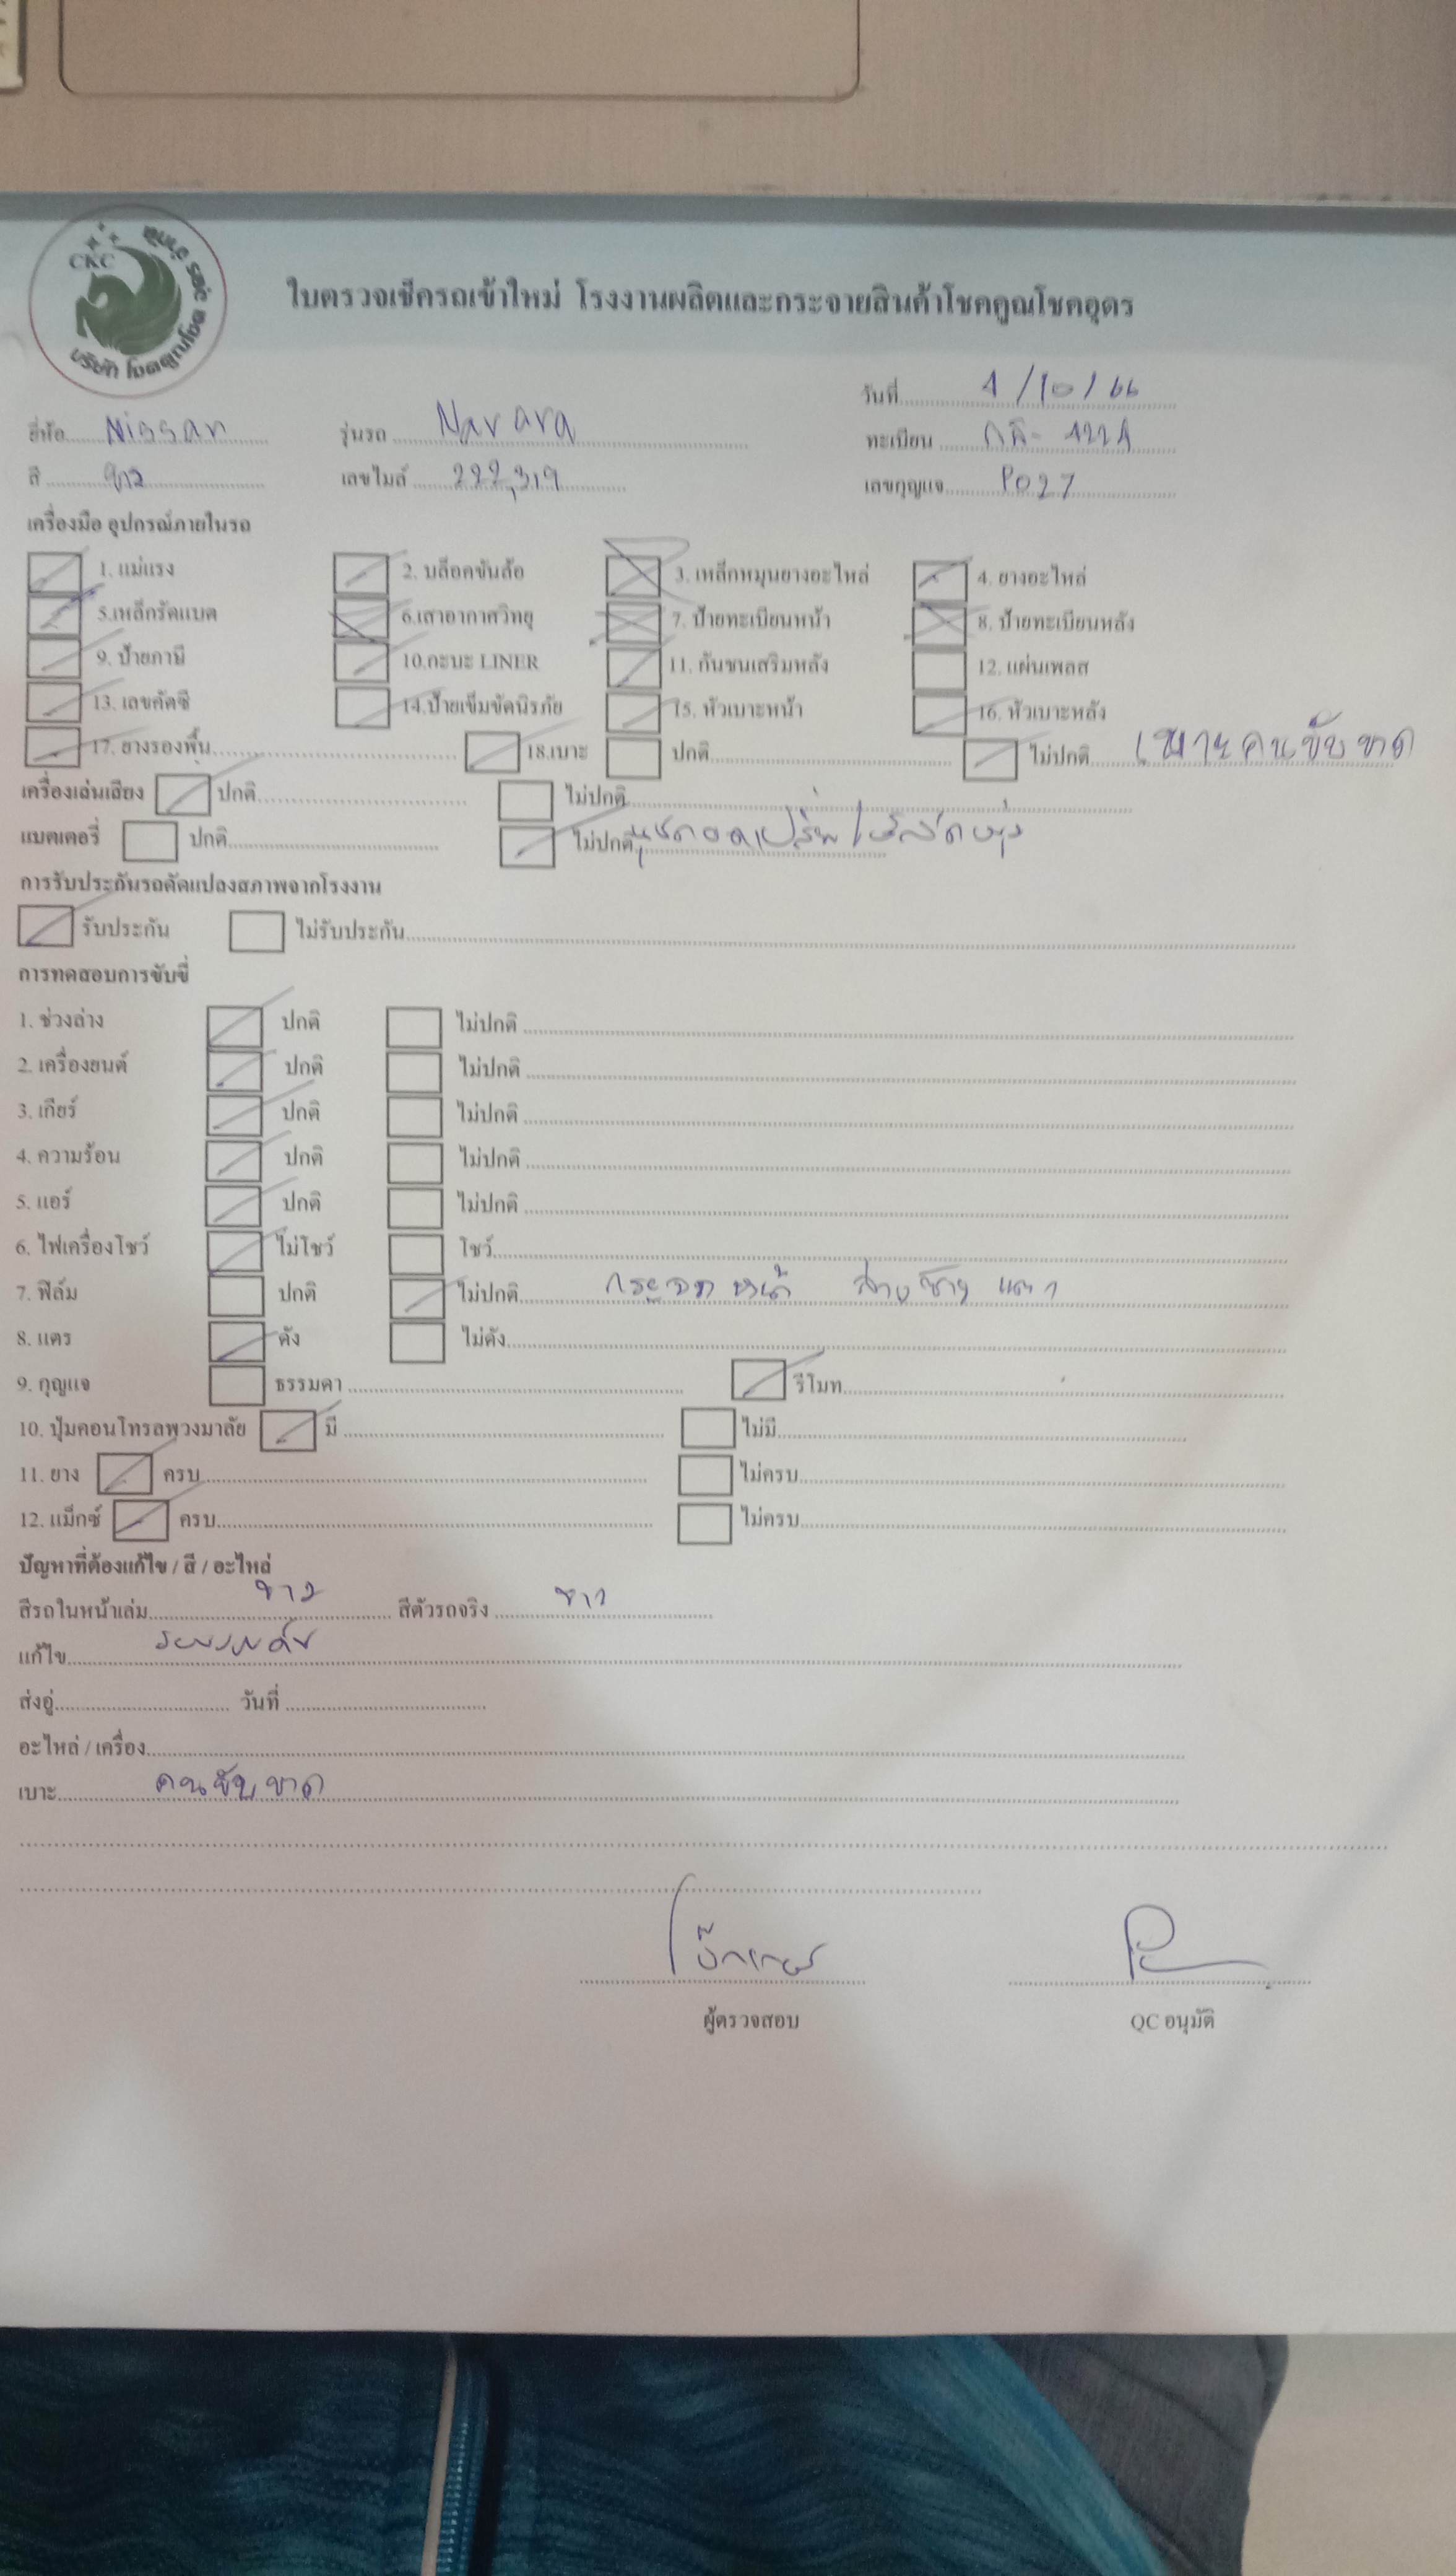 CKC
บริษัท โชคคูณโชค
ใบตรวจเช็ครถเข้าใหม่ โรงงานผลิตและกระจายสินค้าโชคคูณโชคอุดร
วันที่ 4/10/66
ยี่ห้อ Nissan รุ่นรถ Navara ทะเบียน
สี ขาว เลขไมล์ 222,319 เลขกุญแจ P027
เครื่องมือ อุปกรณ์ภายในรถ
1. แม่แรง 2. บล็อคขันล้อ 3. เหล็กหมุนยางอะไหล่ 4. ยางอะไหล่
5.เหล็กรัดแบต 6.เสาอากาศวิทยุ 7. ป้ายทะเบียนหน้า 8. ป้ายทะเบียนหลัง
9. ป้ายภาษี 10.กะบะ LINER 11. กันชนเสริมหลัง 12. แผ่นเพลส
13. เลขคัดซี 14.ป้ายเข็มขัดนิรภัย 15. หัวเบาะหน้า 16. หัวเบาะหลัง
17. ยางรองพื้น 18.เบาะ ปกติ ไม่ปกติ เบาะคนขับขาด
เครื่องเล่นเสียง ปกติ ไม่ปกติ
แบตเตอรี่ ปกติ ไม่ปกติ
การรับประกันรถดัดแปลงสภาพจากโรงงาน
รับประกัน ไม่รับประกัน
การทดสอบการขับขี่
1. ช่วงล่าง ปกติ ไม่ปกติ
2. เครื่องยนต์ ปกติ ไม่ปกติ
3. เกียร์ ปกติ ไม่ปกติ
4. ความร้อน ปกติ ไม่ปกติ
5. แอร์ ปกติ ไม่ปกติ
6. ไฟเครื่องโชว์ ไม่โชว์ โชว์
7. ฟิล์ม ปกติ ไม่ปกติ กระจกหน้า ล่างซ้าย แตก
8. แตร ดัง ไม่ดัง
9. กุญแจ ธรรมดา รีโมท
10. ปุ่มคอนโทรลพวงมาลัย มี ไม่มี
11. ยาง ครบ ไม่ครบ
12. แม็กซ์ ครบ ไม่ครบ
ปัญหาที่ต้องแก้ไข / สี / อะไหล่
สีรถในหน้าเล่ม ขาว สีตัวรถจริง ขาว
แก้ไข
ส่งอู่ วันที่
อะไหล่ / เครื่อง
เบาะ คนขับขาด
ผู้ตรวจสอบ QC อนุมัติ